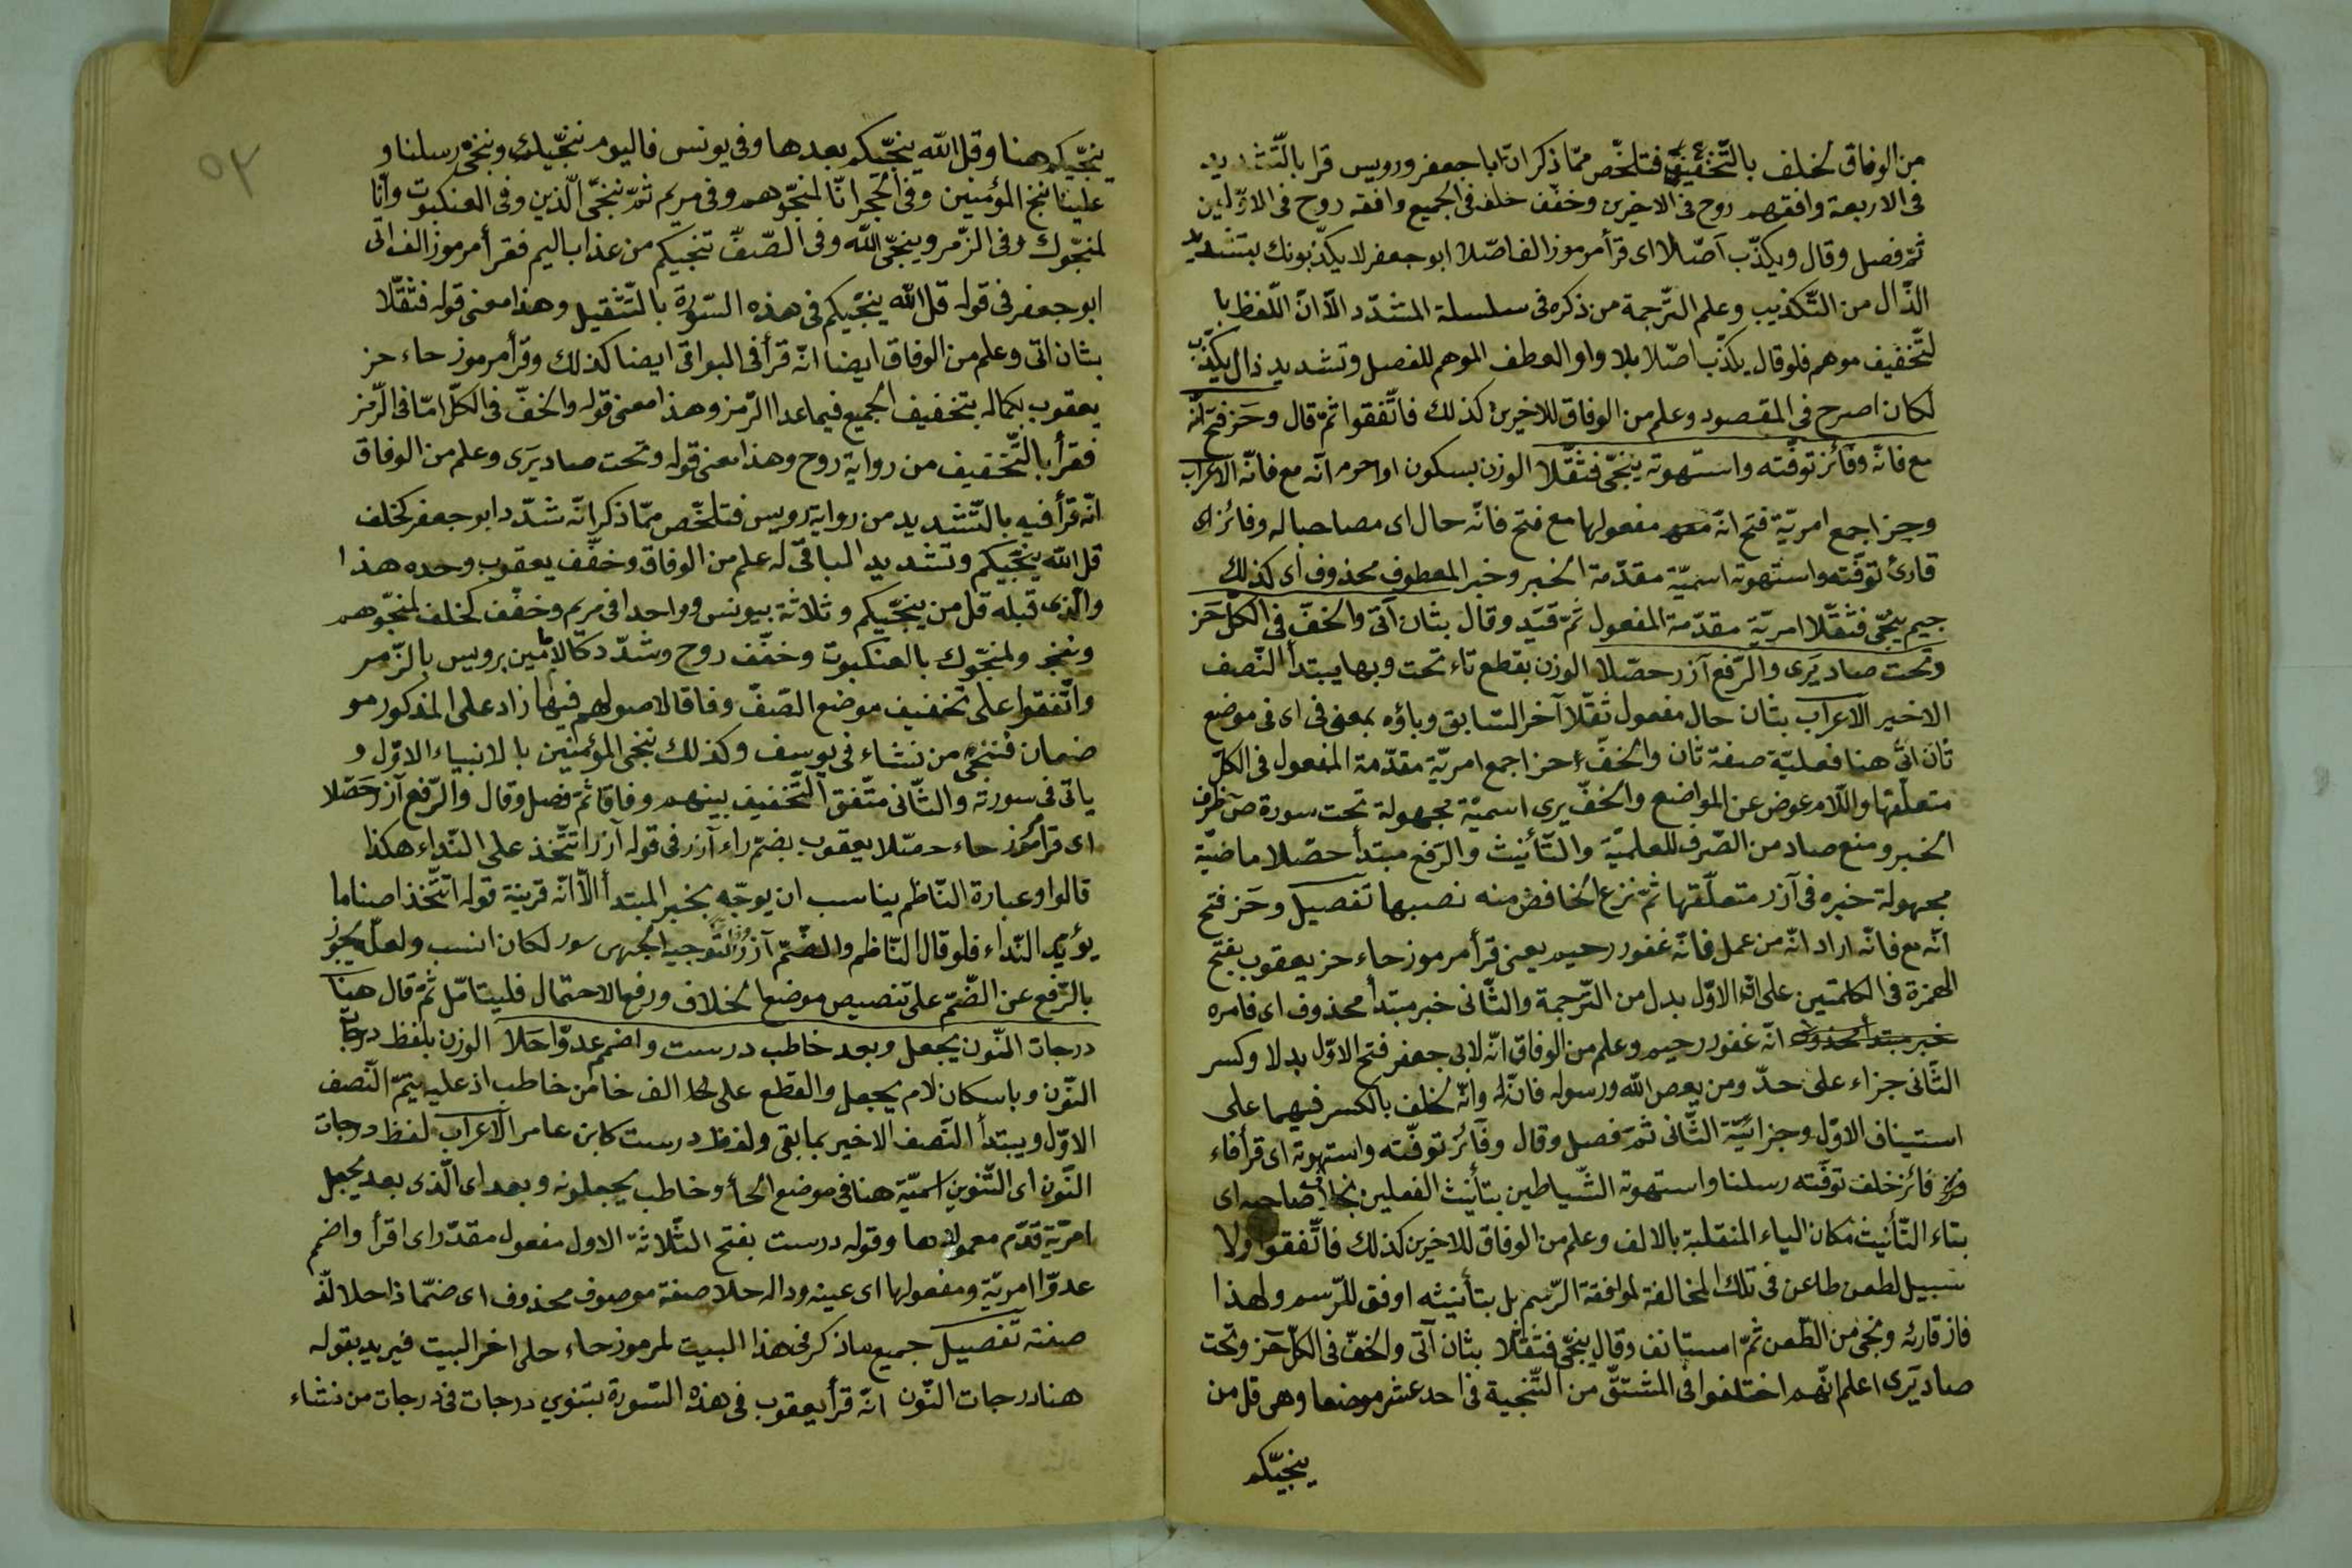 من الوفاق لخلف بالتّخفيف فتلخّص ممّا ذكر انّ ابا جعفر ورويس قرا بالتّشديد
فى الاربعة وافقهم روح فى الاخيرين وخفّف خلف فى الجميع وافقه روح فى الاوّلين
ثمّ فصل وقال ويكذّب اصّلا اى قرأ مرموز الف اصّلا ابو جعفر لا يكذّبونك بتشديد
الذّال من التّكذيب وعلم التّرجمة من ذكره فى سلسلة المشدّد الّا انّ اللّفظ با
لتّخفيف موهم فلو قال يكذّب اصّلا بلا واو العطف الموهم للفصل وتشديد ذال يكذّب
لكان اصرح فى المقصود وعلم من الوفاق للاخرين كذلك فاتّفقوا ثمّ قال وحَز فتح انّه
مع فانّه وفائز توفّته واستهوته ينجّى فثقّلا الوزن بسكون اواخر انّه مع فانّه الاعراب
وحز اجمع امريّة فتح انّه مفعولها مع فتح فانّه حال اى مصاحبا له وفائز اى
قارئ توفّته واستهوته اسميّة مقدّمة الخبر وخبر المعطوف محذوف اى كذلك
جيم ينجّى فثقّلا امريّة مقدّمة المفعول ثمّ قيّد وقال بثان اتى والخفّ فى الكلّ حَز
وتحت صاد يَرى والرّفع آزر حصّلا الوزن بقطع تاء تحت وبها يبتدأ النّصف
الاخير الاعراب بثان حال مفعول ثقّلا آخر السّابق وباؤه بمعنى فى اى فى موضع
ثان اتى هنا فعليّة صفة ثان والخفّ حز اجمع امريّة مقدّمة المفعول فى الكلّ
متعلّقها واللّام عوض عن المواضع والخفّ يرى اسميّة مجهولة تحت سورة صّ ظرف
الخبر ومنع صاد من الصّرف للعلميّة والتّأنيث والرّفع مبتدأ حصّلا ماضيّة
مجهولة خبره فى آزر متعلّقها ثمّ نزع الخافض منه نصبها تفصيل وحَز فتح
انّه مع فانّه اراد انّه من عمل فانّه غفور رحيم يعنى قرأ مرموز حاء حز يعقوب بفتح
الهمزة فى الكلمتين على انّ الاوّل بدل من التّرجمة والثّانى خبر مبتدأ محذوف اى فامره
خبر مبتدأ محذوف انّه غفور رحيم وعلم من الوفاق انّه لابى جعفر فتح الاوّل بدلا وكسر
الثّانى جزاء على حدّ ومن يعص الله ورسوله فانّ له وانّه لخلف بالكسر فيهما على
استيناف الاوّل وجزائيّة الثّانى ثمّ فصل وقال وفائز توفّته واستهوته اى قرأ فاء
فائز خلف توفّته رسلنا واستهوته الشّياطين بتأنيث الفعلين صاحبه اى
بتاء التّأنيث مكان الياء المنقلبة بالالف وعلم من الوفاق للاخرين كذلك فاتّفقوا ولا
سبيل لطعن طاعن فى تلك المخالفة لموافقة الرّسم بل بتأنيثه اوفق للرّسم ولهذا
فاز قارئه ونجى من الطّعن ثمّ استانف وقال ينجّى فثقّلا بثان اتى والخفّ فى الكلّ حَز وتحت
صاد يَرى اعلم انّهم اختلفوا فى المشتقّ من التّنجية فى احد عشر موضعا وهى قل من
ينجّيكم
٥٢
ينجّيكم هنا وقل الله ينجّيكم بعدها وفى يونس فاليوم ننجّيك وننجّى رسلنا و
علينا ننج المؤمنين وفى الحجر انّا لمنجّوهم وفى مريم ثمّ ننجّى الّذين وفى العنكبوت وانّا
لمنجّوك وفى الزّمر وينجّى الله وفى الصّفّ تنجيكم من عذاب اليم فقرأ مرموز الف اتى
ابو جعفر فى قوله قل الله ينجّيكم فى هذه السّورة بالتّثقيل وهذا معنى قوله فثقّلا
بثان اتى وعلم من الوفاق ايضا انّه قرأ فى البواقى ايضا كذلك وقرأ مرموز حاء حز
يعقوب بكماله بتخفيف الجميع فيما عدا الزّمر وهذا معنى قوله والخفّ فى الكلّ امّا فى الزّمر
فقرأ بالتّخفيف من رواية روح وهذا معنى قوله وتحت صاد يَرى وعلم من الوفاق
انّه قرأ فيه بالتّشديد من رواية رويس فتلخّص ممّا ذكر انّه شدّد ابو جعفر كخلف
قل الله ينجّيكم وتشديد الباقى له علم من الوفاق وخفّف يعقوب وحده هذا
والّذى قبله قل من ينجّيكم وثلاثة بيونس وواحدا فى مريم وخفّف كخلف لمنجّوهم
وننجّ ولمنجّوك بالعنكبوت وخفّف روح وشدّد كالامامين رويس بالزّمر
واتّفقوا على تخفيف موضع الصّفّ وفاقا لاصولهم فيها زاد على المذكور مو
ضعان فننجى من نشاء فى يوسف وكذلك ننجى المؤمنين بالانبياء الاوّل و
ياتى فى سورته والثّانى متّفق التّخفيف بينهم وفاقا ثمّ فصل وقال والرّفع آزر حَصّلا
اى قرأ مرموز حاء حصّلا يعقوب بضمّ راء آزر فى قوله آزر اتتّخذ على النّداء هكذا
قالوا وعبارة النّاظم يناسب ان يوجّه بخبر المبتدأ الّا انّه قرينة قوله اتتّخذ اصناما
يؤيّد النّداء فلو قال النّاظم والضّمّ آزر لكان انسب ولعلّه يجوز
بالرّفع عن الضّمّ على تنصيص موضع الخلاف ورفع الاحتمال فليتامّل ثمّ قال هنا
درجات النّون يجعل وبعد خاطب درست واضمم عدوّا حَلا الوزن بلفظ درجات
النّون وباسكان لام يجعل والقطع على الف خا من خاطب اذ عليه يتمّ النّصف
الاوّل ويبتدأ النّصف الاخير بما بقى ولفظ درست كابن عامر الاعراب لفظ درجات
النّون اى التّنوين اسميّة هنا فى موضع الحأ وخاطب يجعلونه وبعد اى الّذى بعد يجعل
امريّة قدّم معمولها وقوله درست بفتح الثّلاثة الاول مفعول مقدّر اى اقرأ واضمم
عدوّا امريّة ومفعولها اى عينه وداله حلا صفة موصوف محذوف اى ضمّا ذا حلا
صفته تفصيل جميع ما ذكر فى هذا البيت لمرموز حاء حلى اخر البيت فيريد بقوله
هنا درجات النّون انّه قرأ يعقوب فى هذه السّورة بتنوين درجات فى درجات من نشاء